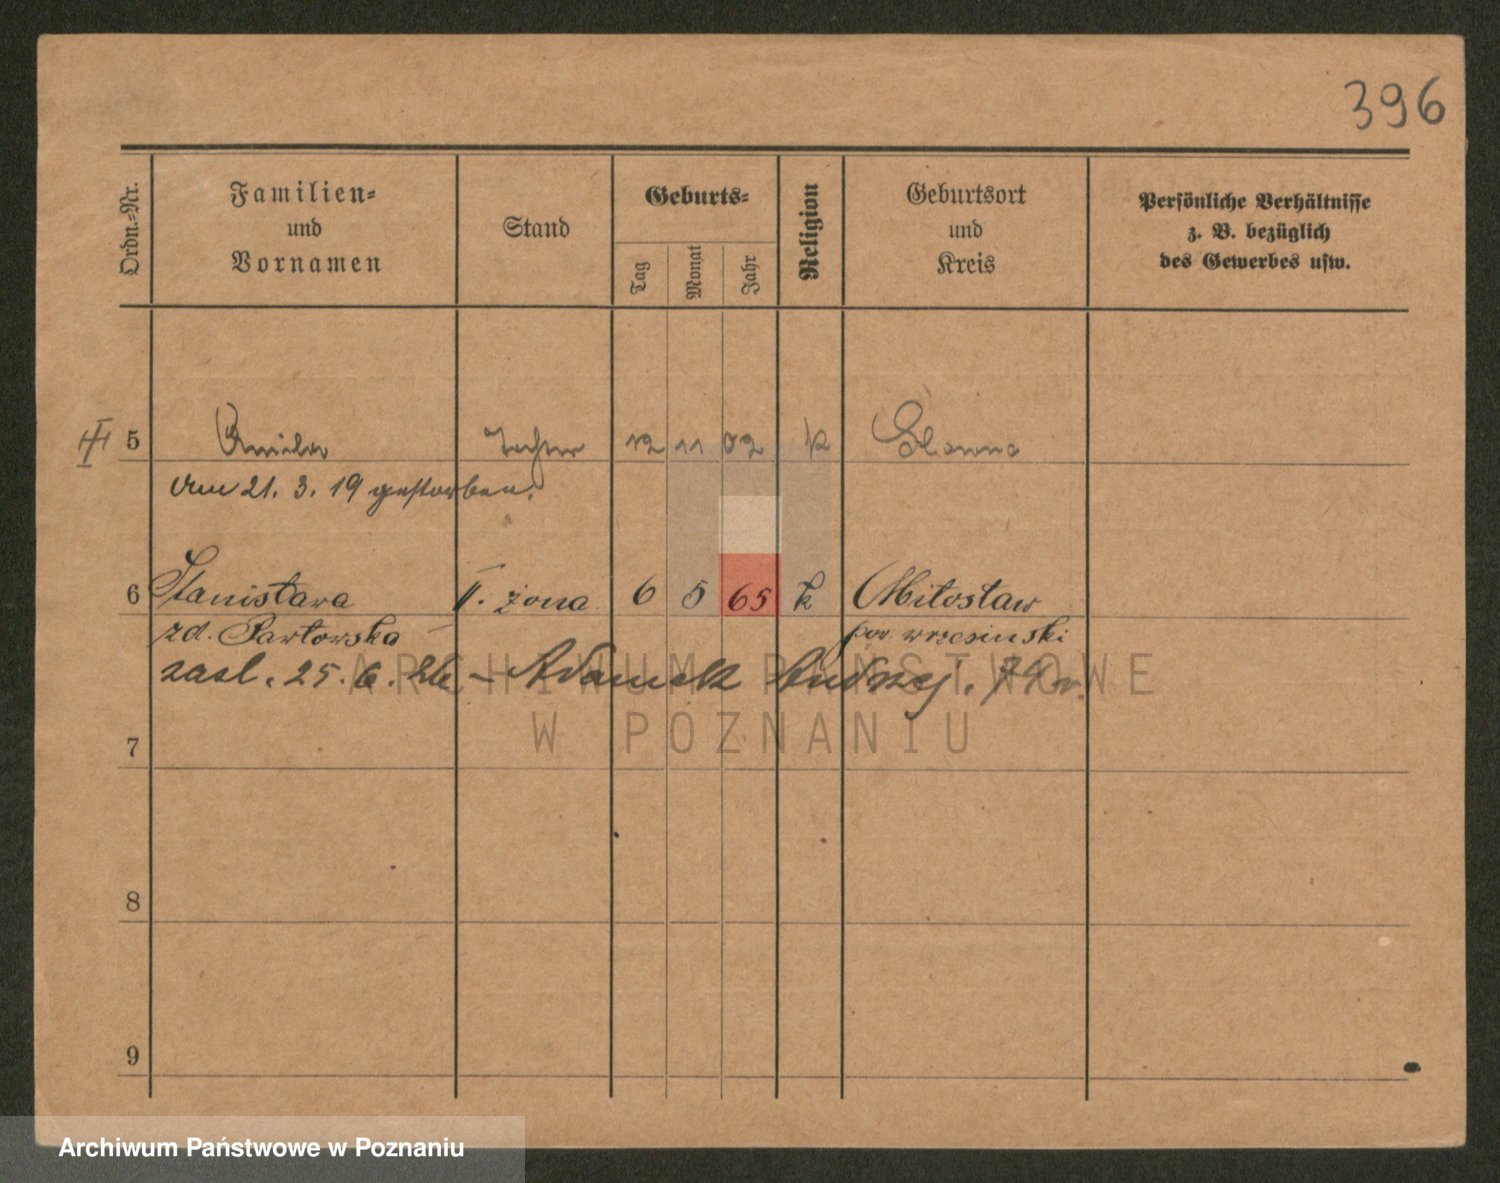 396
Ordn.-Nr.
Familien-
und
Vornamen
Stand
Geburts-
Tag
Monat
Jahr
Religion
Geburtsort
und
Kreis
Persönliche Verhältnisse
z. B. bezüglich
des Gewerbes usw.
5 Tochter 12 11 02 k
Am 21. 3. 19 gestorben.
6 Stanisława II. żona 6 5 65 k Miłosław
zd. Pawłowska pow. wrzesiński
zasl. 25. 6. 26 – Adamek Andrzej.
ARCHIWUM PAŃSTWOWE
W POZNANIU
7
8
9
Archiwum Państwowe w Poznaniu